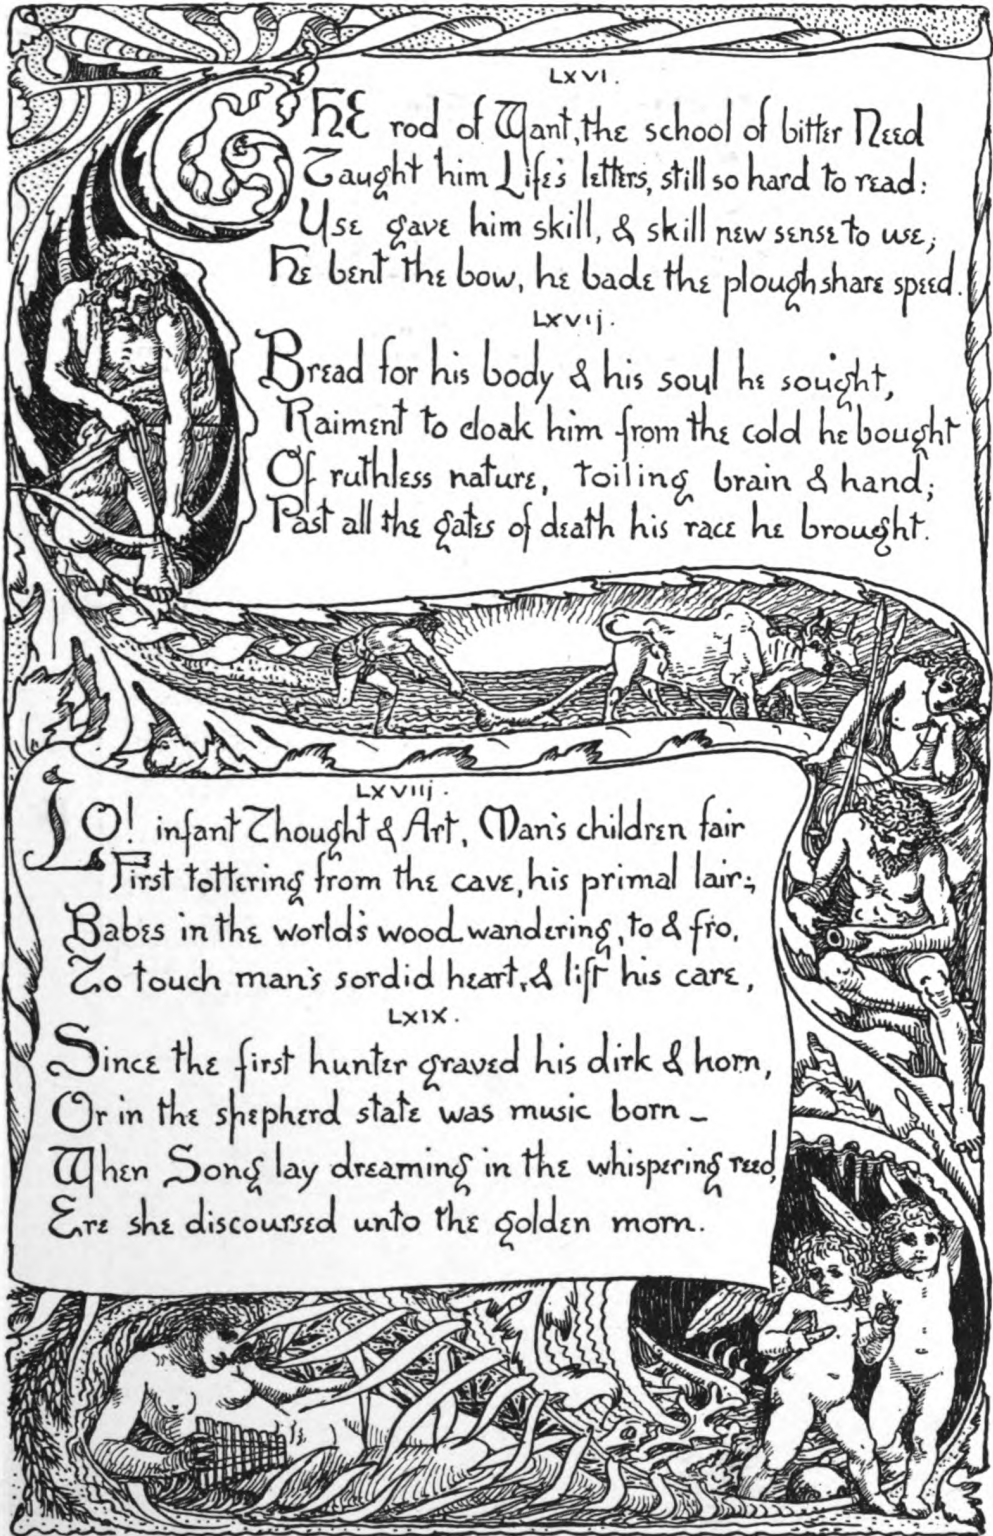 LXVI.
THE rod of Want, the school of bitter Need
Taught him Life's letters, still so hard to read:
Use gave him skill, & skill new sense to use;
He bent the bow, he bade the ploughshare speed.
LXVIJ.
Bread for his body & his soul he sought,
Raiment to cloak him from the cold he bought
Of ruthless nature, toiling brain & hand;
Past all the gates of death his race he brought.
LXVIIJ.
LO! infant Thought & Art, Man's children fair
First tottering from the cave, his primal lair;
Babes in the world's wood wandering, to & fro,
To touch man's sordid heart, & lift his care,
LXIX.
Since the first hunter graved his dirk & horn,
Or in the shepherd state was music born –
When Song lay dreaming in the whispering reed,
Ere she discoursed unto the golden morn.